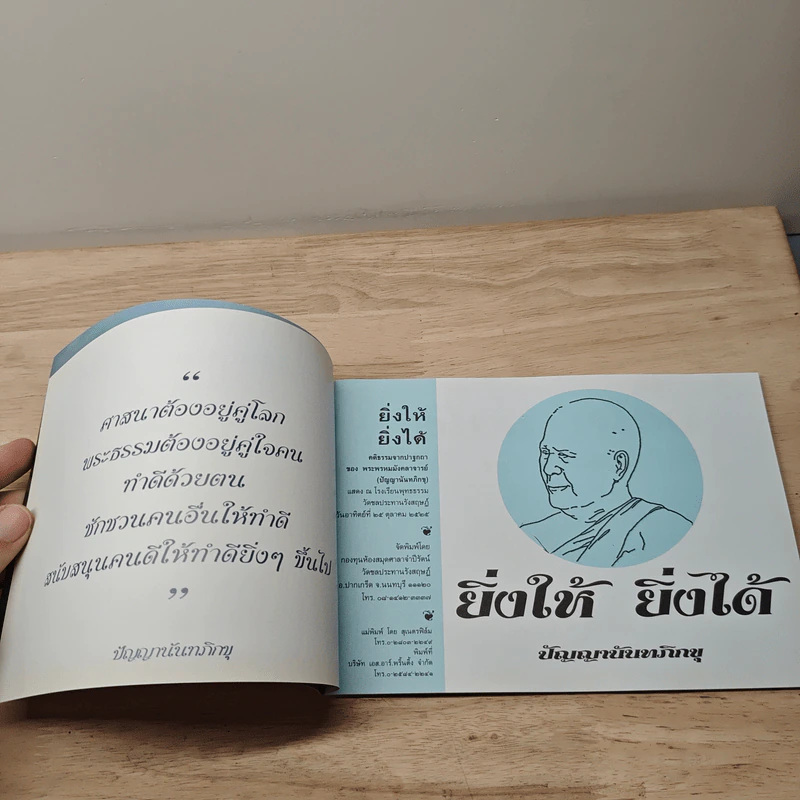 “
ศาสนาต้องอยู่คู่โลก
พระธรรมต้องอยู่คู่ใจคน
ทำดีด้วยตน
ชักชวนคนอื่นให้ทำดี
สนับสนุนคนดีให้ทำดียิ่งๆ ขึ้นไป
”
ปัญญานันทภิกขุ
ยิ่งให้
ยิ่งได้
คติธรรมจากปาฐกถา
ของ พระพรหมมังคลาจารย์
(ปัญญานันทภิกขุ)
แสดง ณ โรงเรียนพุทธธรรม
วัดชลประทานรังสฤษฏ์
วันอาทิตย์ที่ ๒๕ ตุลาคม ๒๕๒๕
จัดพิมพ์โดย
กองทุนห้องสมุดศาลาจำปีรัตน์
วัดชลประทานรังสฤษฏ์
อ.ปากเกร็ด จ.นนทบุรี ๑๑๑๒๐
โทร. ๐๘-๑๔๑๒-๓๓๓๗
แม่พิมพ์ โดย สุเนตรฟิล์ม
โทร.๐-๒๘๐๓-๒๒๔๙
พิมพ์ที่
บริษัท เอส.อาร์.พริ้นติ้ง จำกัด
โทร.๐-๒๕๘๔-๒๒๔๑
ยิ่งให้ ยิ่งได้
ปัญญานันทภิกขุ